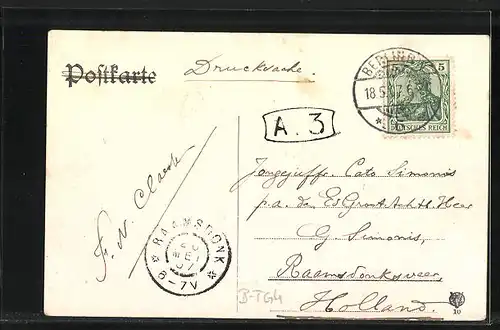 Postkarte
Drucksache.
BERLIN
18.5.
5
DEUTSCHES REICH
A. 3
Jongejuffr. Cato Simonis
p.a. de Ed Groot Achtb. Heer
G. Simonis,
Raamsdonksveer
Holland.
F. N.
RAAMSDONK
20
MEI
07
6-7V
B-TG4
10